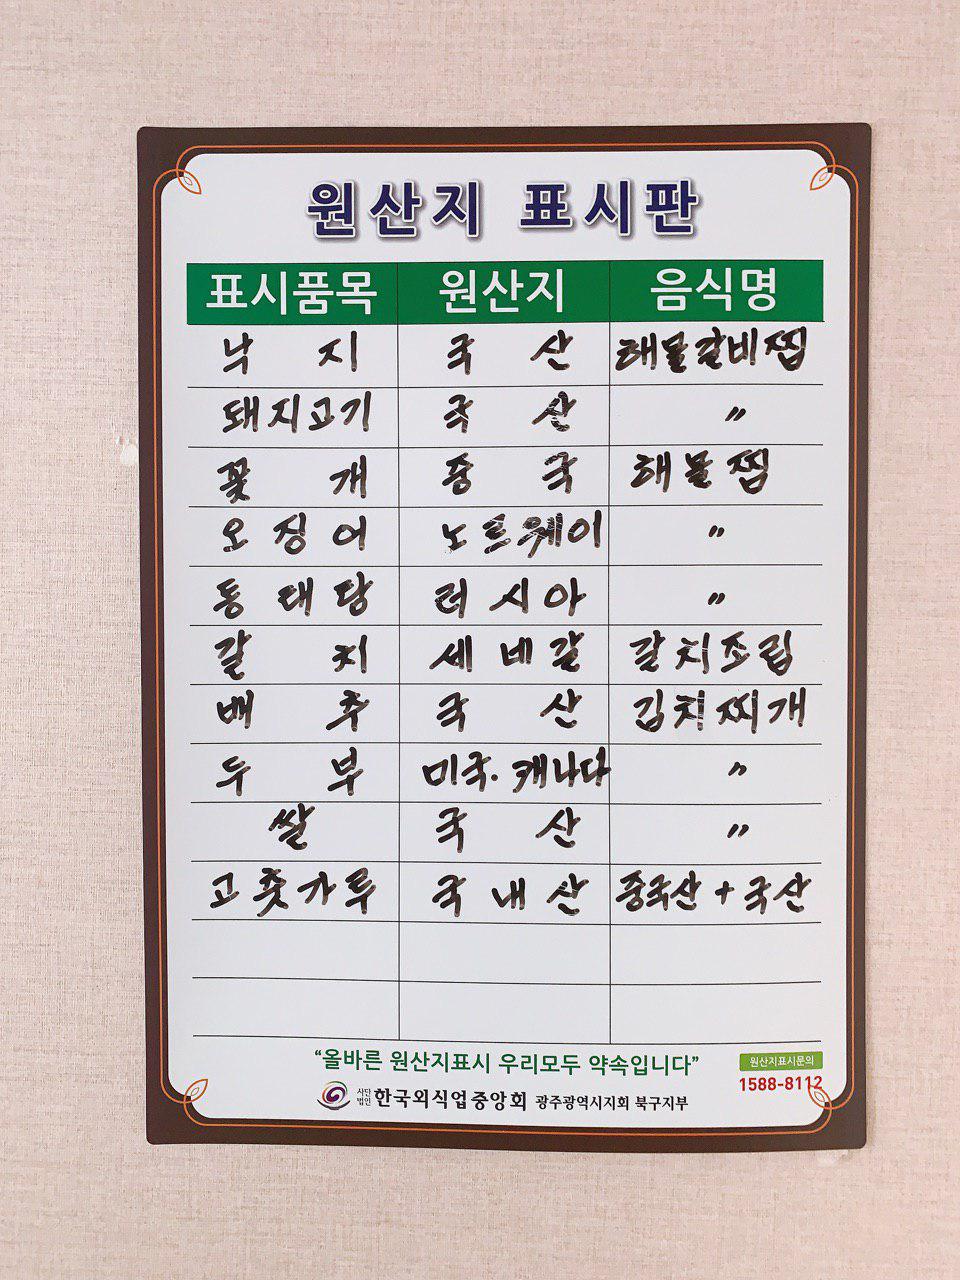 원산지 표시판
표시품목 원산지 음식명
낙지 국산 해물갈비찜
돼지고기 국산 〃
꽃개 중국 해물찜
오징어 노르웨이 〃
동태탕 러시아 〃
갈치 세네갈 갈치조림
배추 국산 김치찌개
두부 미국. 캐나다 〃
쌀 국산 〃
고춧가루 국내산 중국산 + 국산
“올바른 원산지표시 우리모두 약속입니다”
원산지표시문의
1588-8112
사단법인 한국외식업중앙회 광주광역시지회 북구지부